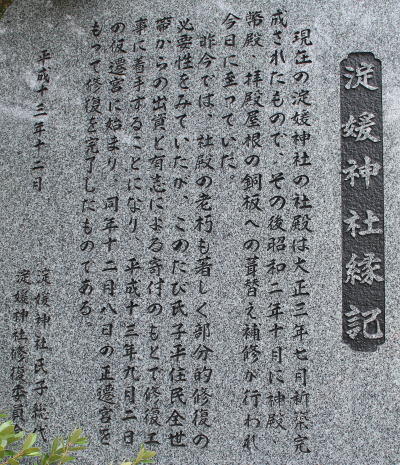 淀媛神社縁記
現在の淀媛神社の社殿は大正三年七月新築完
成されたもので、その後昭和二年十月に神殿
幣殿、拝殿屋根の銅板への葺替え補修が行われ
今日に至っていた。
昨今では、社殿の老朽も著しく部分的修復の
必要性をみていたが、このたび氏子平住民全世
帯からの出資と有志による寄付のもとで修復工
事に着手することになり、平成十三年九月二日
の仮遷宮に始まり、同年十二月八日の正遷宮を
もって修復を完了したものである。
平成十三年十二日
淀媛神社氏子総代
淀媛神社修復委員会